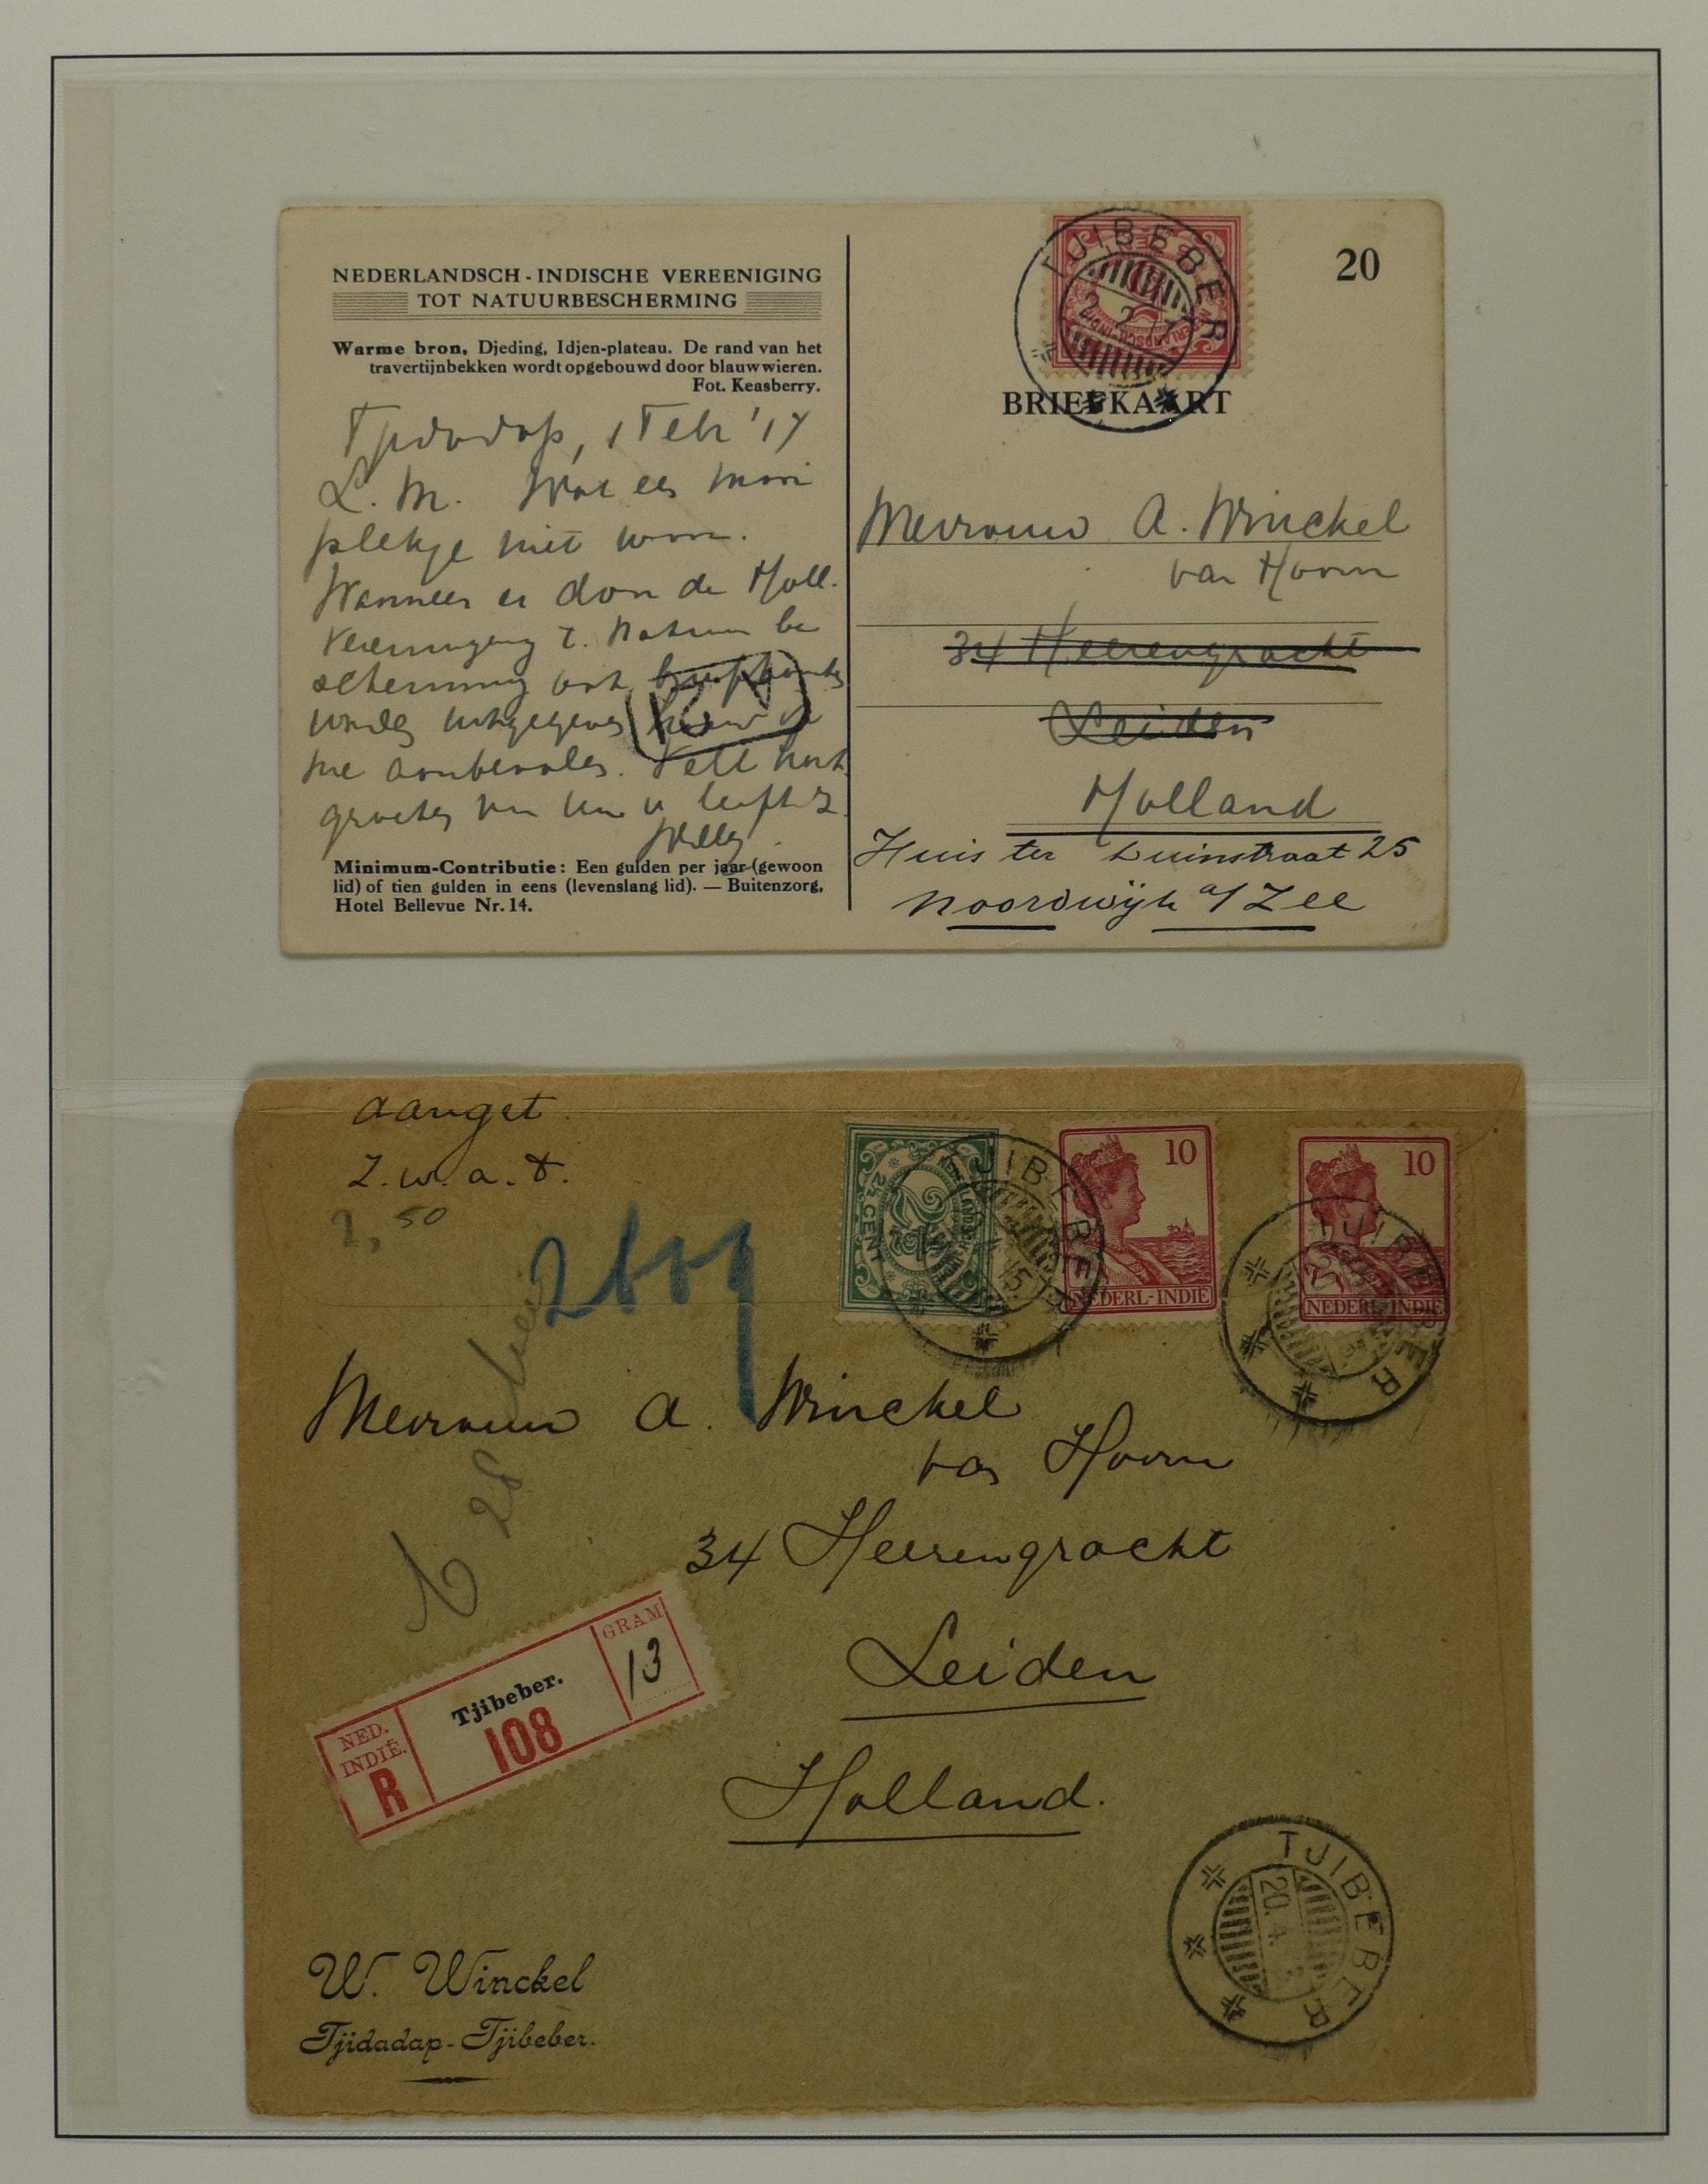 NEDERLANDSCH-INDISCHE VEREENIGING
TOT NATUURBESCHERMING
Warme bron, Djeding, Idjen-plateau. De rand van het
travertijnbekken wordt opgebouwd door blauwwieren.
Fot. Keasberry.
Tjidadap, 1 Febr '17
L. M. Wat een mooi
plekje niet waar.
Wanneer er van de Holl.
Vereeniging t. Natuur be
scherming ook briefkaarten
worden uitgegeven
me aanbevolen. Veel hart.
groeten van uw u liefh. z.
Willy.
Minimum-Contributie: Een gulden per jaar (gewoon
lid) of tien gulden in eens (levenslang lid). — Buitenzorg,
Hotel Bellevue Nr. 14.
20
TJIBEBER
2 2 17
BRIEFKAART
Mevrouw A. Winckel
van Hoorn
34 Heerengracht
Leiden
Holland
Huis ter Duinstraat 25
Noordwijk a/Zee
KN
aanget.
Z.w.a.d.
2,50
2609
28
2½ CENT
NEDERLANDSCH-INDIË
TJIBEBER
10
NEDERL-INDIË
10
NEDERL-INDIË
TJIBEBER
Mevrouw A. Winckel
van Hoorn
34 Heerengracht
Leiden
Holland.
NED.
INDIË.
R
Tjibeber.
108
GRAM
13
TJIBEBER
20.4.
W. Winckel
Tjidadap-Tjibeber.